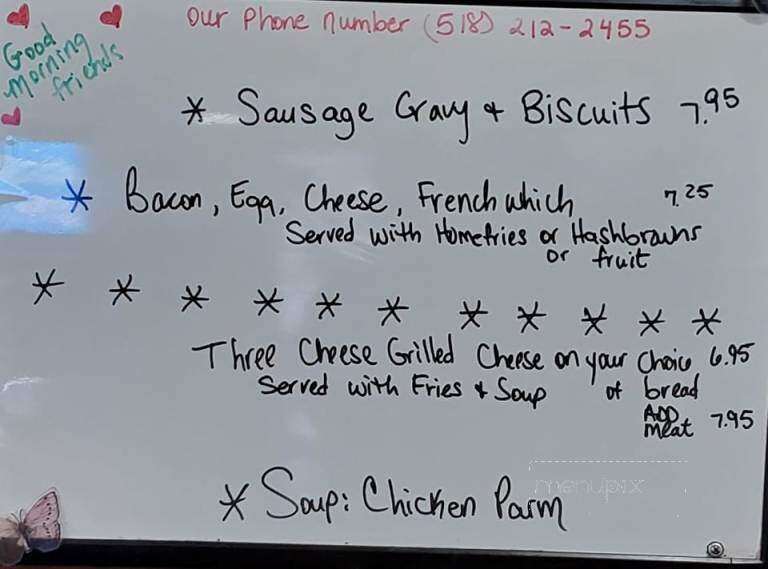 Our Phone number (518) 212-2455
Good
morning
friends
* Sausage Gravy & Biscuits 7.95
* Bacon, Egg, Cheese, French which 7.25
Served with Homefries or Hashbrowns
or fruit
* * * * * * * * * * *
Three Cheese Grilled Cheese on your choice 6.95
Served with Fries & Soup of bread
ADD
meat 7.95
* Soup: Chicken Parm
menupix